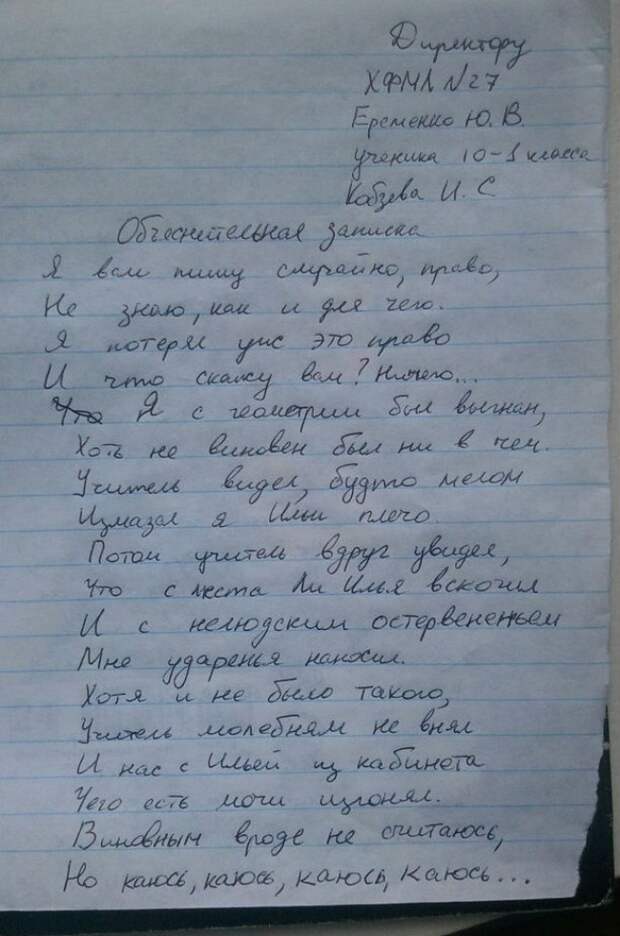 Директору
ХФМЛ №27
Еременко Ю. В.
ученика 10-1 класса
Кабзева И. С
Объяснительная записка
Я вам пишу случайно, право,
Не знаю, как и для чего.
Я потерял уж это право
И что скажу вам? Ничего...
Что Я с геометрии был выгнан,
Хоть не виновен был ни в чем.
Учитель видел, будто мелом
Измазал я Ильи плечо.
Потом учитель вдруг увидел,
Что с места Ли Илья вскочил
И с нелюдским остервененьем
Мне ударенья наносил.
Хотя и не было такого,
Учитель молебням не внял
И нас с Ильей из кабинета
Чего есть мочи изгонял.
Виновным вроде не считаюсь,
Но каюсь, каюсь, каюсь, каюсь...